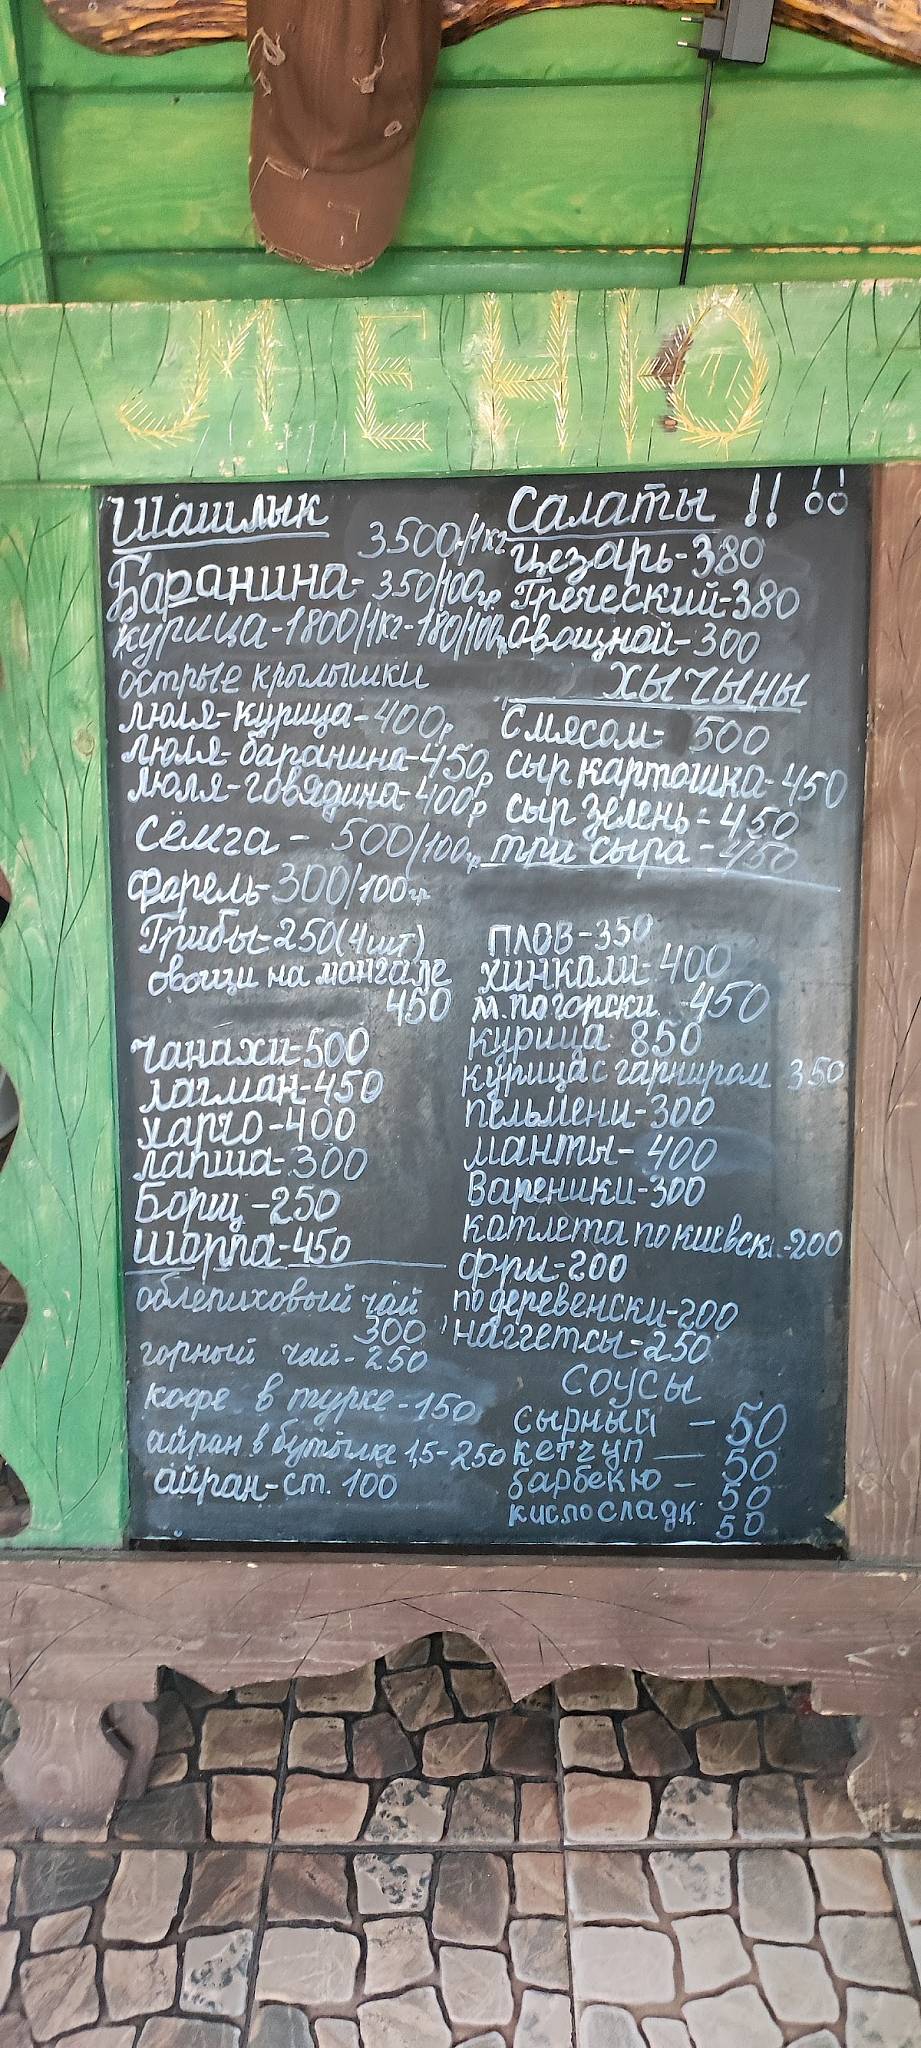 МЕНЮ
Шашлык
3500/1кг
Баранина-350/100гр
курица-1800/1кг-180/100гр
острые крылышки
люля-курица-400р
люля-баранина-450р
люля-говядина-400р
сёмга-500/100гр
форель-300/100гр
Грибы-250(4шт)
овощи на мангале
450
чанахи-500
лагман-450
харчо-400
лапша-300
Борщ-250
Шорпа-450
облепиховый чай
300
горный чай-250
кофе в турке-150
айран в бутылке 1,5-250
айран-ст. 100
Салаты !!
цезарь-380
Греческий-380
овощной-300
хычыны
С мясом- 500
сыр картошка-450
сыр зелень-450
три сыра-450
плов-350
хинкали-400
м.по горски -450
курица 850
курица с гарниром 350
пельмени-300
манты-400
Вареники-300
котлета по киевски-200
фри-200
по деревенски-200
наггетсы-250
Соусы
сырный - 50
кетчуп — 50
барбекю - 50
кислосладк. 50